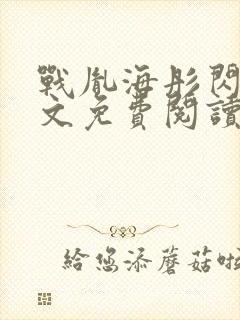 戰胤海彤閃
文免費閱讀
給您添蘑菇啦